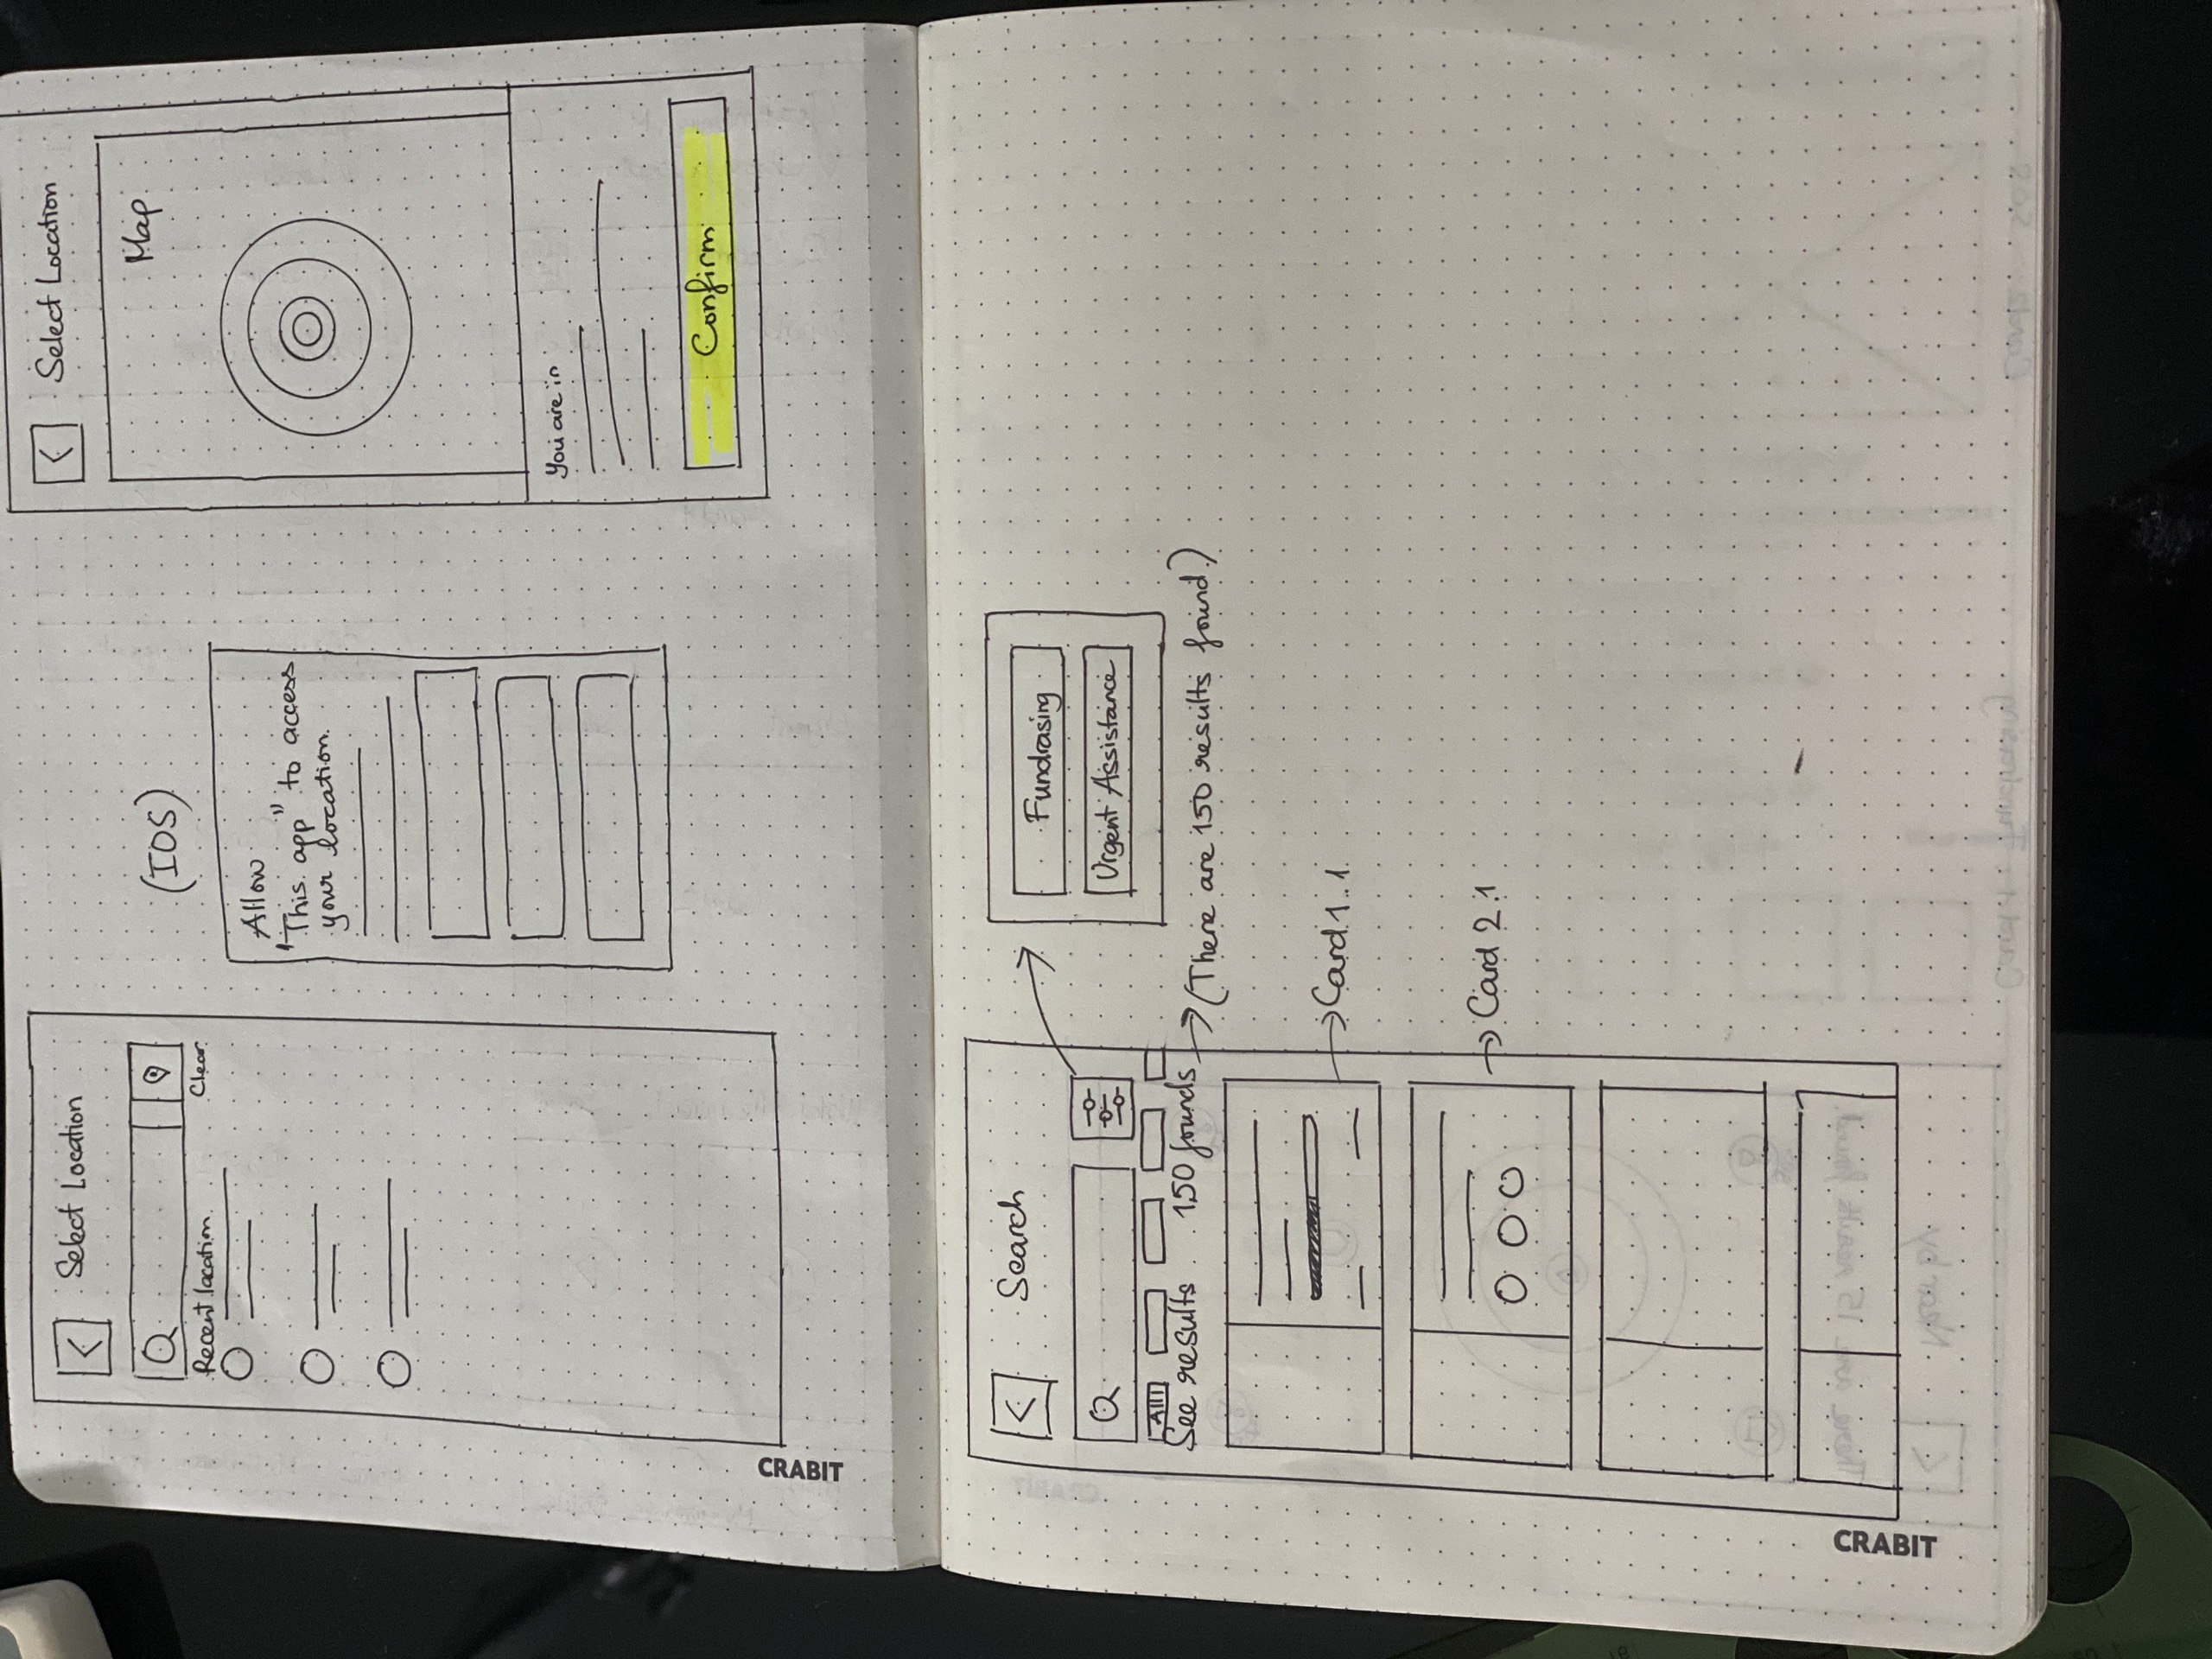 Select Location
Recent location
Clear
CRABIT
(IOS)
Allow
"This app" to access
your location.
Select Location
Map
You are in
Confirm
Search
All
See results 150 founds
(There are 150 results found)
Fundrasing
Urgent Assistance
Card 1.1
Card 2.1
CRABIT